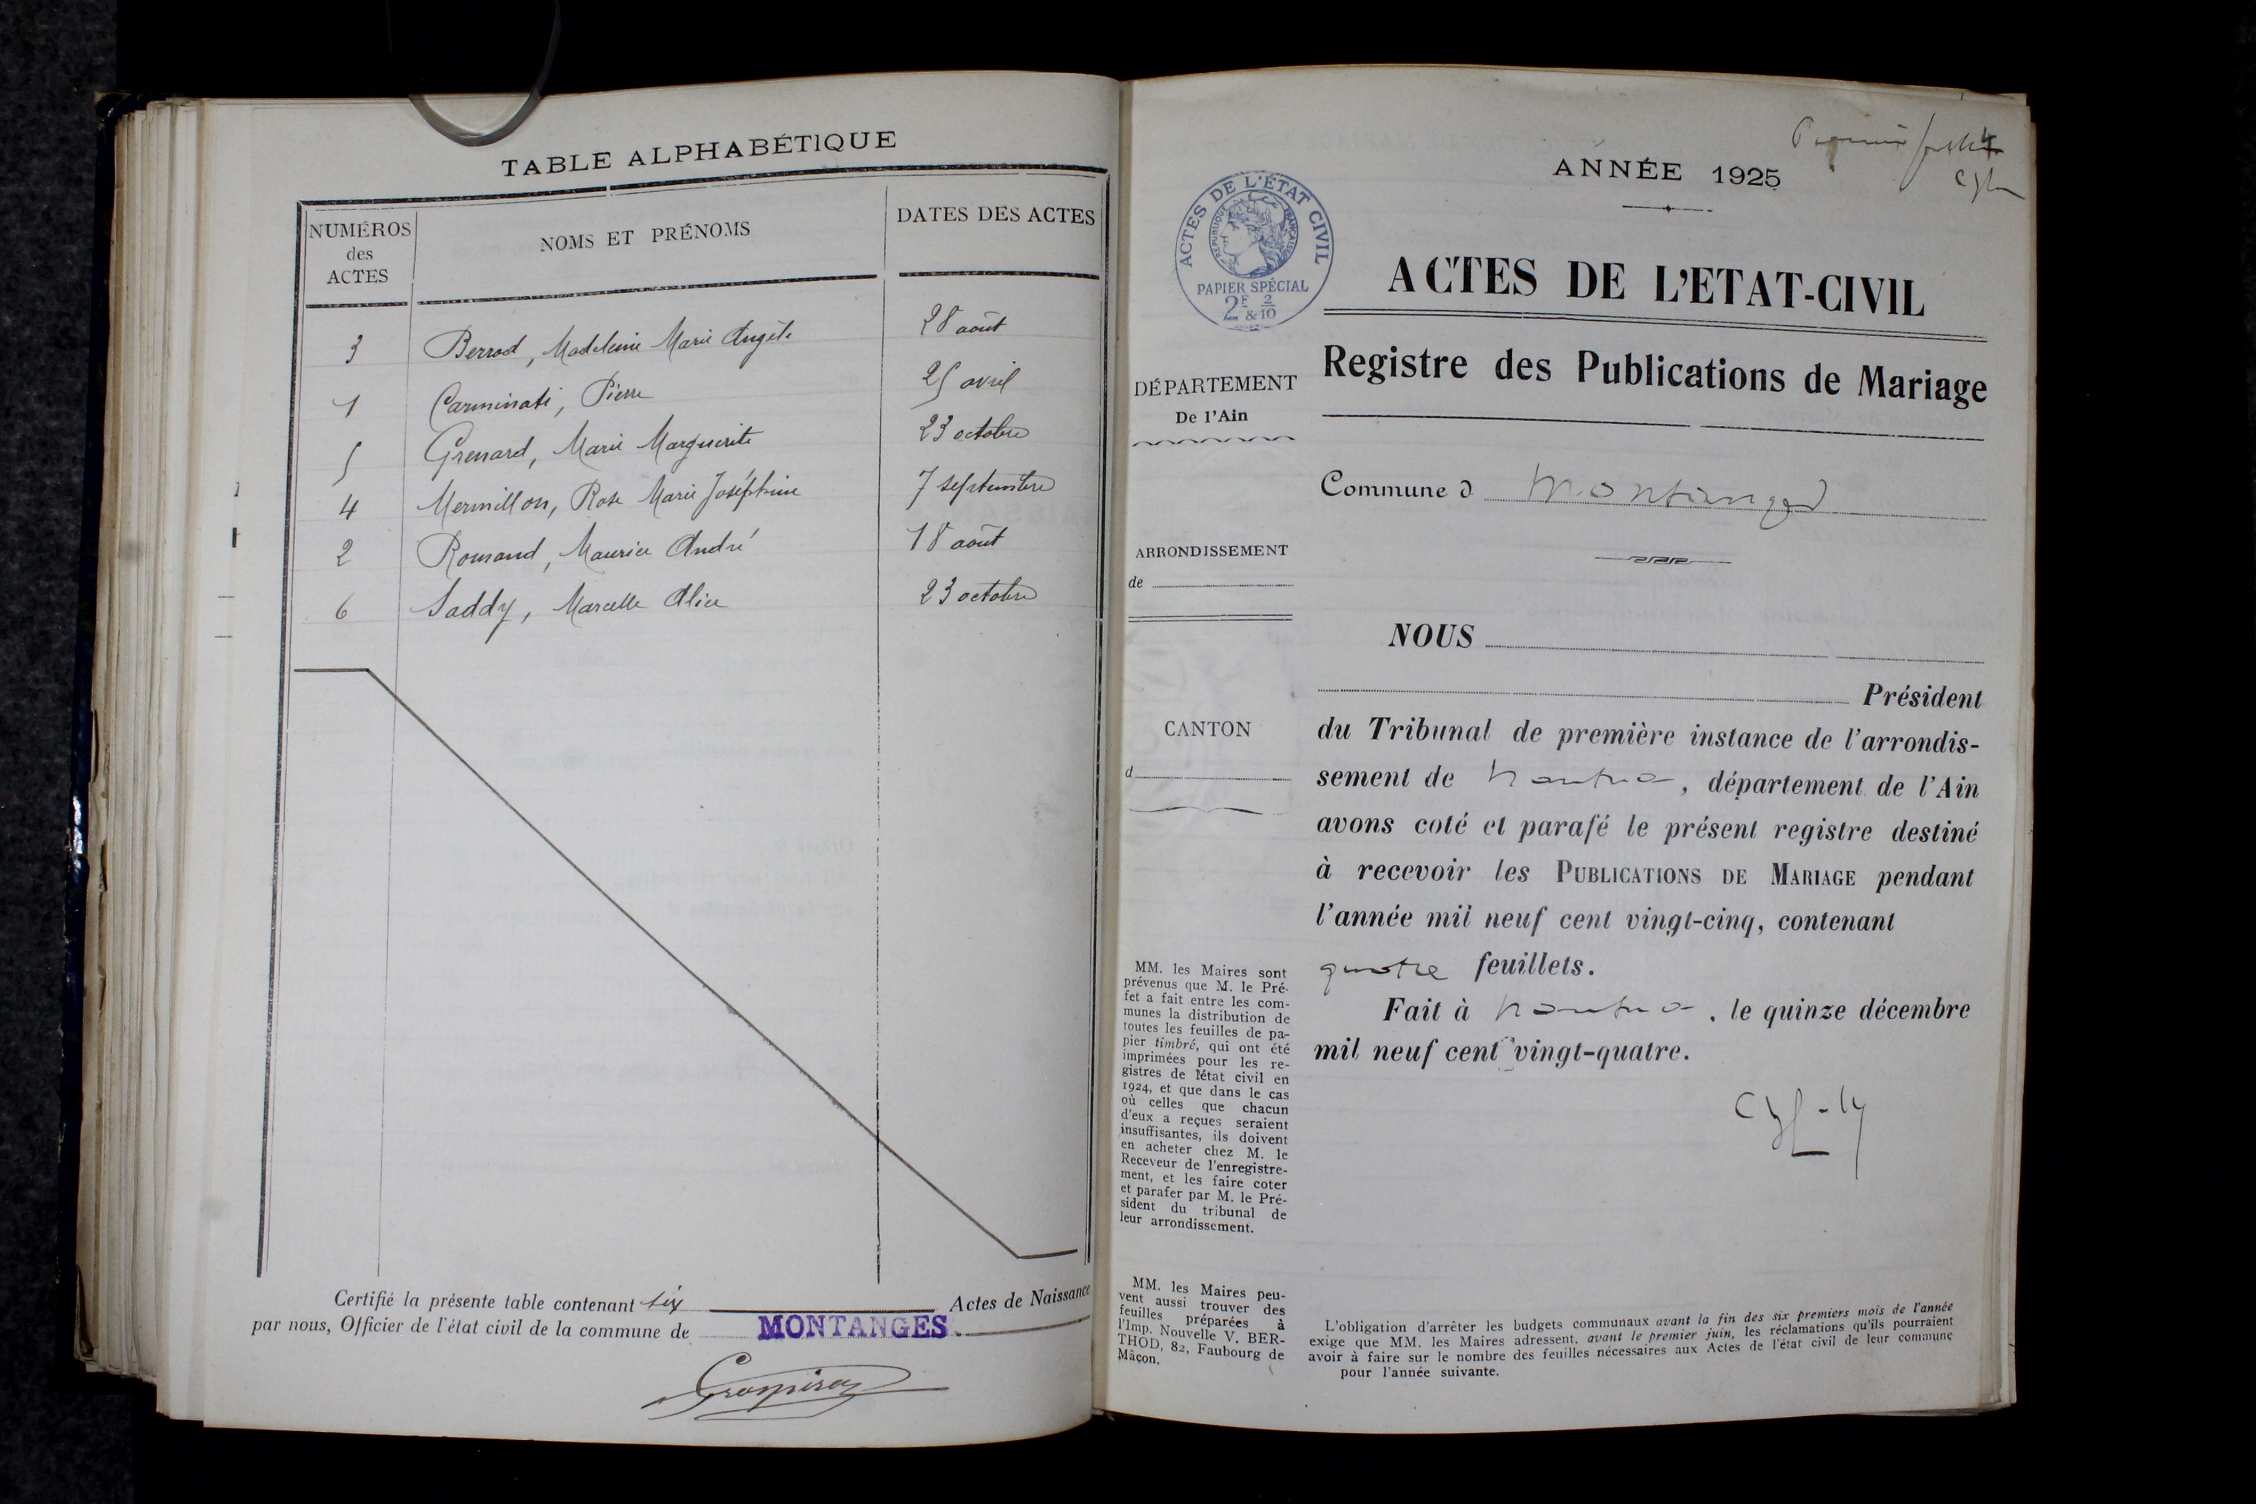 TABLE ALPHABÉTIQUE
NUMÉROS
des
ACTES
NOMS ET PRÉNOMS
DATES DES ACTES
3 Berrod, Madeleine Marie Angèle 28 août
1 Carminati, Pierre 25 avril
5 Grenard, Marie Marguerite 23 octobre
4 Mermillon, Rose Marie Joséphine 7 septembre
2 Rousand, Maurice André 18 août
6 Saddy, Marcelle Alice 23 octobre
Certifié la présente table contenant six Actes de Naissance
par nous, Officier de l'état civil de la commune de MONTANGES.
Premier
4
ANNÉE 1925
ACTES DE L'ÉTAT CIVIL
RÉPUBLIQUE FRANÇAISE
PAPIER SPÉCIAL
2F & 2/10
ACTES DE L'ETAT-CIVIL
Registre des Publications de Mariage
DÉPARTEMENT
De l'Ain
Commune d Montanges
ARRONDISSEMENT
de
NOUS
Président
CANTON
d
du Tribunal de première instance de l'arrondis-
sement de Nantua, département de l'Ain
avons coté et parafé le présent registre destiné
à recevoir les PUBLICATIONS DE MARIAGE pendant
l'année mil neuf cent vingt-cinq, contenant
quatre feuillets.
Fait à Nantua, le quinze décembre
mil neuf cent vingt-quatre.
MM. les Maires sont
prévenus que M. le Pré-
fet a fait entre les com-
munes la distribution de
toutes les feuilles de pa-
pier timbré, qui ont été
imprimées pour les re-
gistres de l'état civil en
1924, et que dans le cas
où celles que chacun
d'eux a reçues seraient
insuffisantes, ils doivent
en acheter chez M. le
Receveur de l'enregistre-
ment, et les faire coter
et parafer par M. le Pré-
sident du tribunal de
leur arrondissement.
MM. les Maires peu-
vent aussi trouver des
feuilles préparées à
l'Imp. Nouvelle V. BER-
THOD, 82, Faubourg de
Mâcon.
L'obligation d'arrêter les budgets communaux avant la fin des six premiers mois de l'année
exige que MM. les Maires adressent, avant le premier juin, les réclamations qu'ils pourraient
avoir à faire sur le nombre des feuilles nécessaires aux Actes de l'état civil de leur commune
pour l'année suivante.